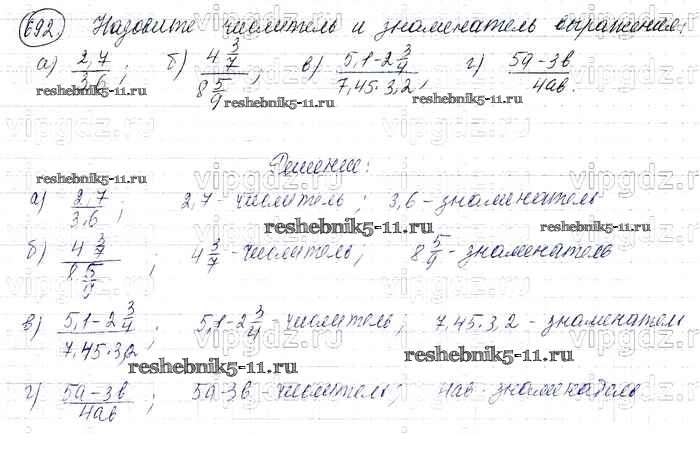 692 Назовите числитель и знаменатель выражения:
а) 2,7/3,6; б) 4 3/7 / 8 5/9; в) 5,1-2 3/4 / 7,45·3,2; г) 5а-3в / 4ав.
reshebnik5-11.ru reshebnik5-11.ru reshebnik5-11.ru
vipgdz.ru vipgdz.ru vipgdz.ru
Решение:
reshebnik5-11.ru
а) 2,7/3,6; 2,7 - числитель; 3,6 - знаменатель
reshebnik5-11.ru reshebnik5-11.ru
б) 4 3/7 / 8 5/9; 4 3/7 - числитель; 8 5/9 - знаменатель
в) 5,1-2 3/4 / 7,45·3,2; 5,1-2 3/4 - числитель; 7,45·3,2 - знаменатель
reshebnik5-11.ru reshebnik5-11.ru
г) 5а-3в / 4ав; 5а-3в - числитель; 4ав - знаменатель